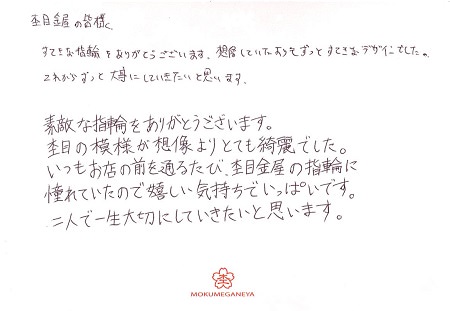 杢目金屋の皆様へ
すてきな指輪をありがとうございます。想像していたよりもずっとすてきなデザインでした。
これからずっと大事にしていきたいと思います。
素敵な指輪をありがとうございます。
杢目の模様が想像よりとても綺麗でした。
いつもお店の前を通るたび、杢目金屋の指輪に
憧れていたので嬉しい気持ちでいっぱいです。
二人で一生大切にしていきたいと思います。
MOKUMEGANEYA